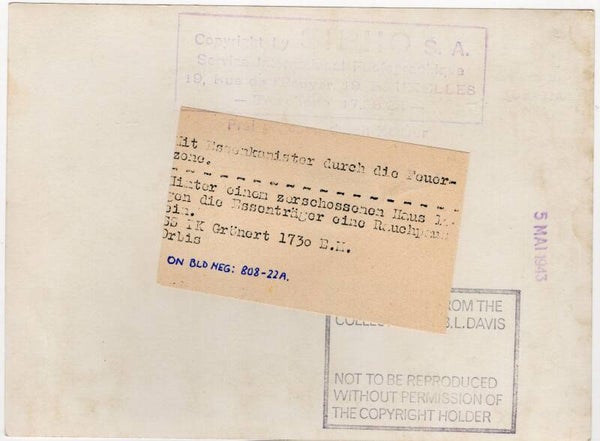 Copyright by SIPHO S. A.
Service International Photographique
19, Rue de 19 BRUXELLES
Mit Essenkanister durch die Feuer-
zone.
Hinter einem zerschossenen Haus le-
gen die Essenträger eine Rauchpau
ein.
SS PK Grünert 1730 E.M.
Orbis
ON BLD NEG: 808-22A.
5 MAI 1943
FROM THE
COLLE B.L. DAVIS
NOT TO BE REPRODUCED
WITHOUT PERMISSION OF
THE COPYRIGHT HOLDER